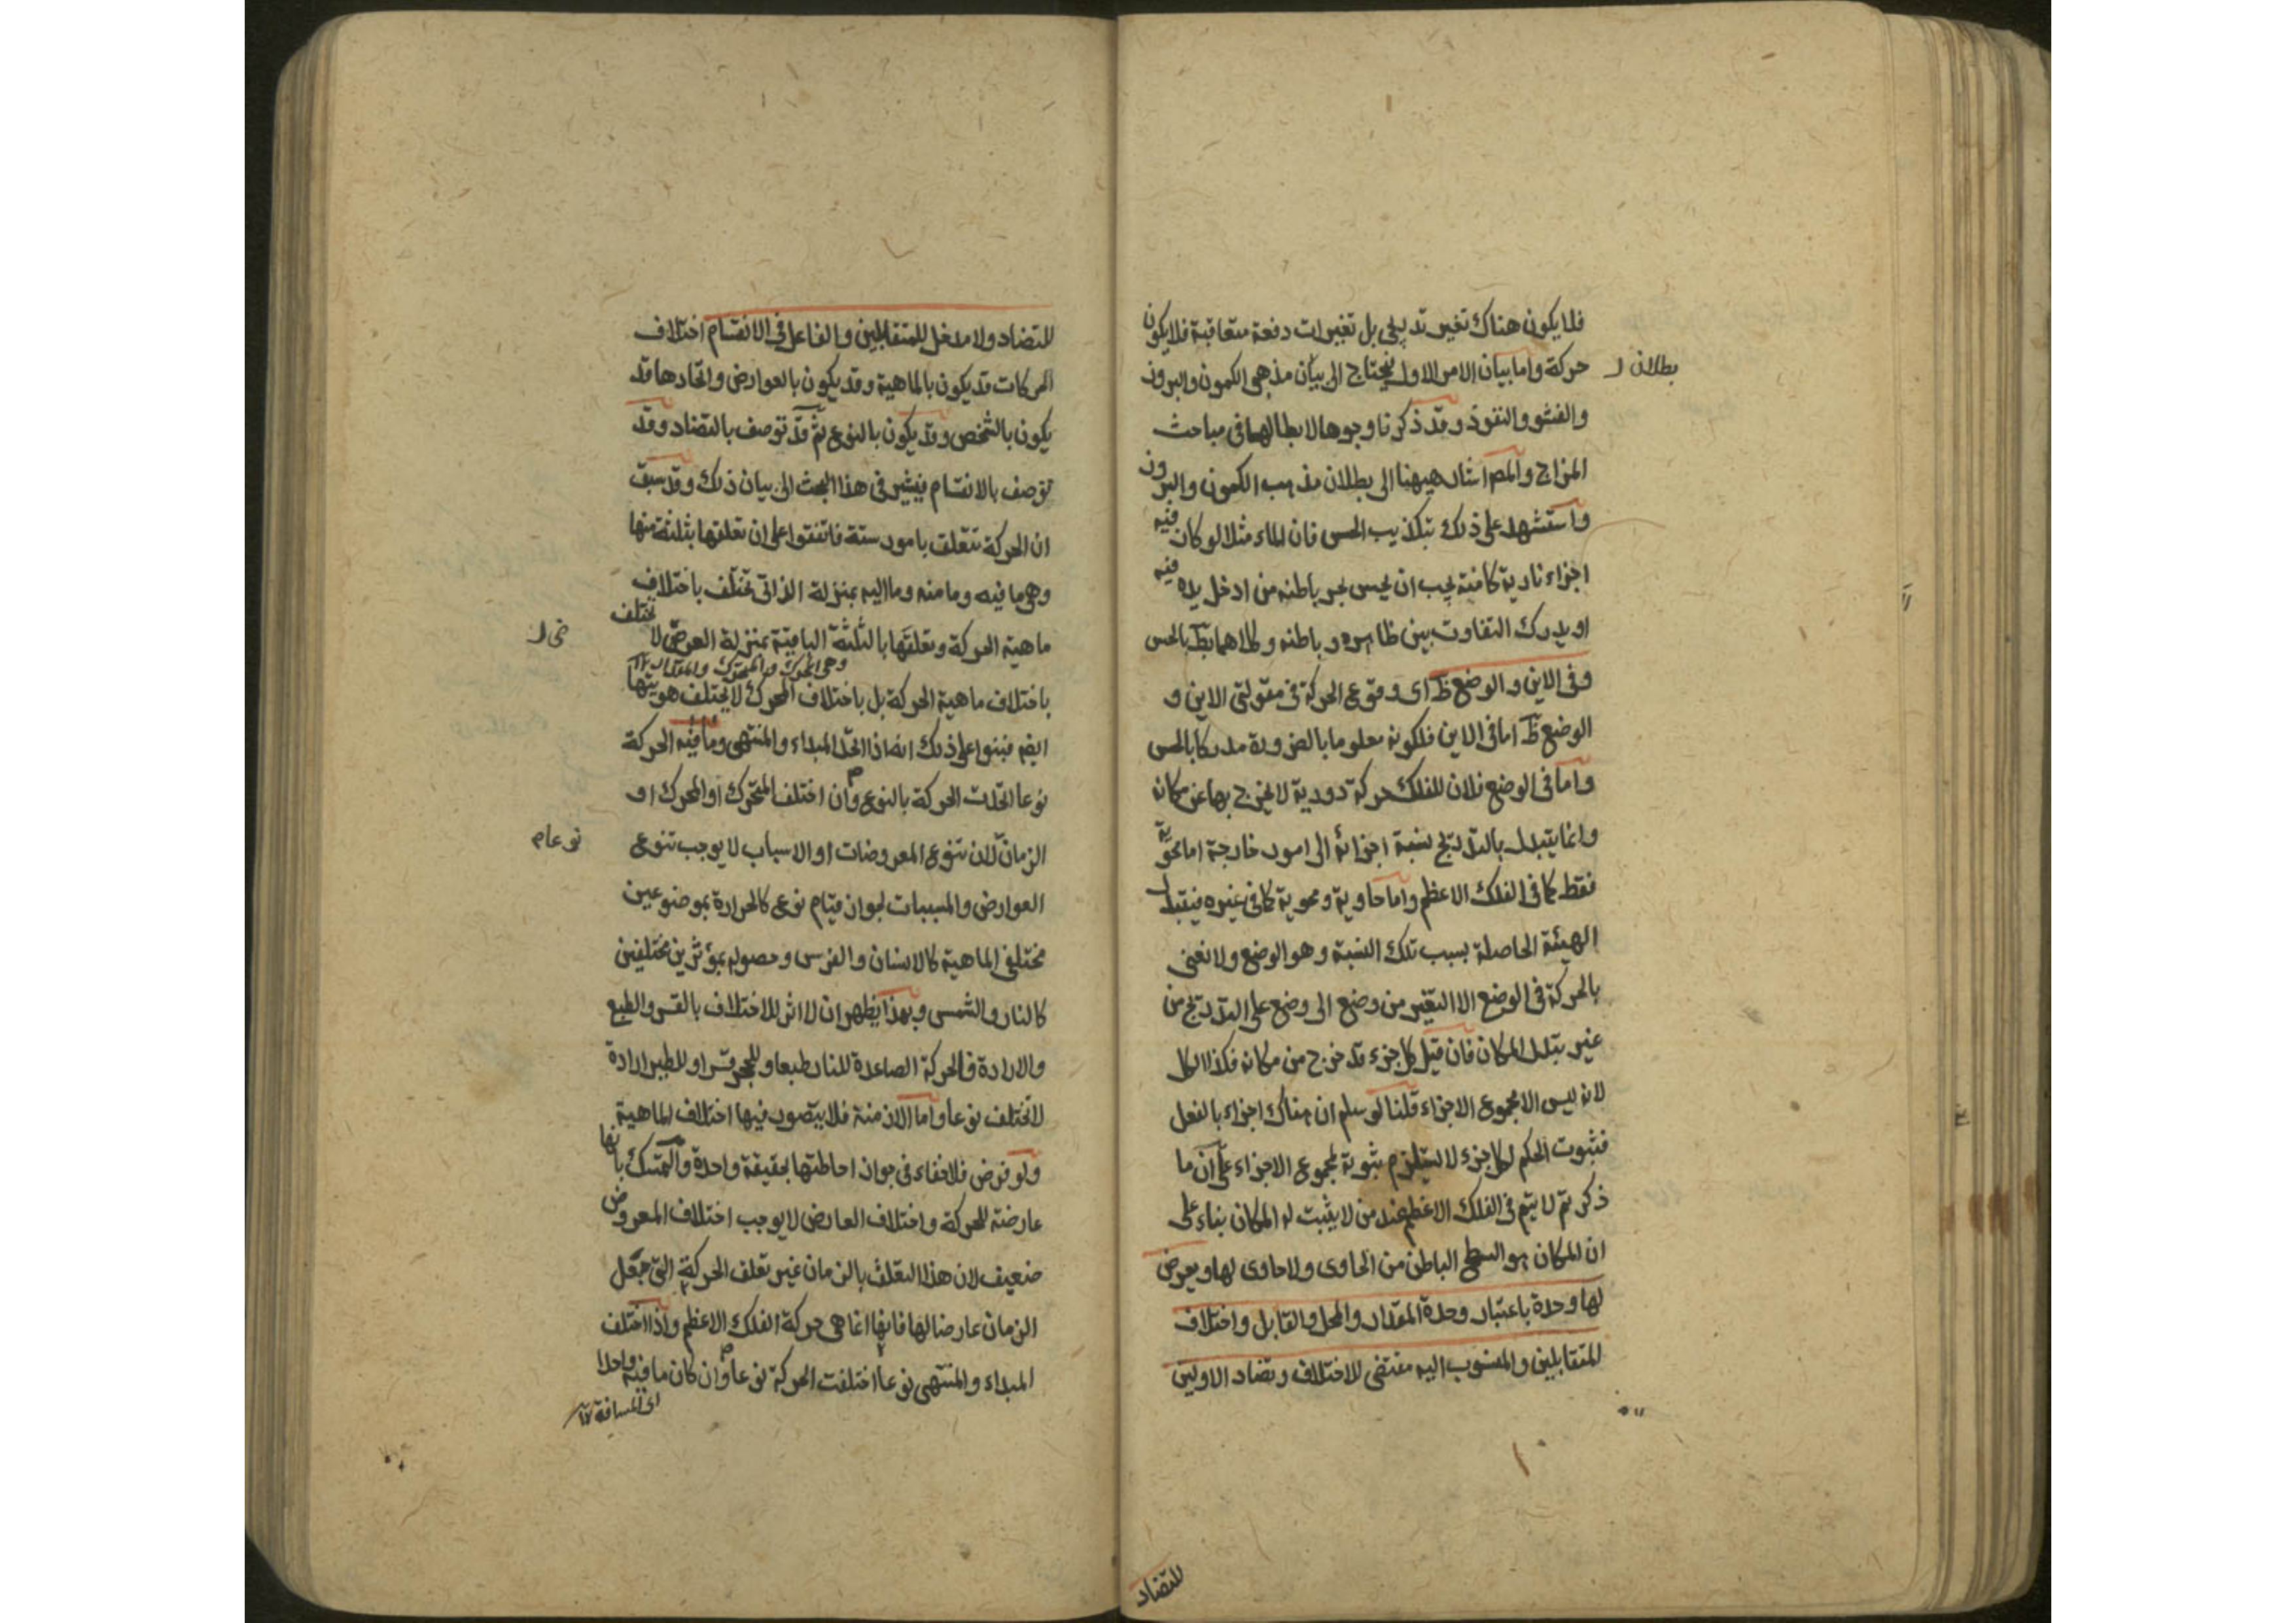 فلا يكون هناك تغير تدريجى بل تغيرات دفعة متعاقبة فلا يكون
حركة واما بيان الامر الاول فيحتاج الى بيان مذهبى الكمون والبروز
بطلان
والفشو والنفوذ وقد ذكرنا وجوها لابطالهما فى مباحث
المزاج والمص اشار هيهنا الى بطلان مذهب الكمون والبروز
واستشهد على ذلك بتكذيب الحس فان الماء مثلا لو كان فيه
اجزاء نارية كامنة يجب ان يحس بحر باطنه من ادخل يده فيه
او يدرك التفاوت بين ظاهره وباطنه وكلاهما بط بالحس
وفى الاين والوضع ظ اى وقوع الحركة فى مقولتى الاين و
الوضع ظ اما فى الاين فلكونه معلوما بالضرورة مدركا بالحس
واما فى الوضع فلان للفلك حركة دورية لا يخرج بها عن مكانه
وانما يتبدل بالتدريج نسبة اجزائه الى امور خارجة اما محوية
فقط كما فى الفلك الاعظم واما حاوية ومحوية كما فى غيره فيتبدل
الهيئة الحاصلة بسبب تلك النسبة وهو الوضع ولا نعنى
بالحركة فى الوضع الا التغير من وضع الى وضع على التدريج من
غير تبدل المكان فان قيل كل جزء قد خرج من مكانه فكذا الكل
لانه ليس الا مجموع الاجزاء قلنا لو سلم ان هناك اجزاء بالفعل
فثبوت الحكم لكل جزء لا يستلزم ثبوته لمجموع الاجزاء على ان ما
ذكر ثم لا يتم فى الفلك الاعظم عند من لا يثبت له المكان بناء على
ان المكان هو السطح الباطن من الحاوى ولا حاوى لها ويعرض
لها وحدة باعتبار وحدة المقدار والمحل والقابل واختلاف
المتقابلين والمنسوب اليه مقتضى للاختلاف وتضاد الاولين
للتضاد
للتضاد ولا مدخل للمتقابلين والفاعل فى الانقسام اختلاف
الحركات قد يكون بالماهية وقد يكون بالعوارض واتحادها قد
يكون بالشخص وقد يكون بالنوع ثم قد توصف بالتضاد وقد
توصف بالانقسام فيشير فى هذا البحث الى بيان ذلك وقد سبق
ان الحركة تتعلق بامور ستة فاتفقوا على ان تعلقها بثلثة منها
وهى ما فيه وما منه وما اليه بمنزلة الذاتى تختلف باختلاف
ماهية الحركة وتعلقها بالثلثة الباقية بمنزلة العرضى لا تختلف
وهى المحرك والمتحرك والزمان ١٢
باختلاف ماهية الحركة بل باختلاف المحرك لا يختلف هويتها
ايض فبنوا على ذلك انه اذا اتحد المبداء والمنتهى وما فيه الحركة
نوعا اتحدت الحركة بالنوع وان اختلف المتحرك او المحرك او
الزمان لان تنوع المعروضات او الاسباب لا يوجب تنوع
نوعا م
العوارض والمسببات لجواز قيام نوع كالحرارة بموضوعين
مختلفى الماهية كالانسان والفرس وحصوله بمؤثرين مختلفين
كالنار والشمس وبهذا يظهر ان لا اثر للاختلاف بالقسر والطبع
والارادة فالحركة الصاعدة للنار طبعا وللحجر قسرا وللطير ارادة
لا تختلف نوعا واما الازمنة فلا يتصور فيها اختلاف الماهية
ولو فرض فلا خفاء فى جواز احاطتها بحقيقة واحدة والتمسك بانها
عارضة للحركة واختلاف العارض لا يوجب اختلاف المعروض
ضعيف لان هذا التعلق بالزمان غير تعلق الحركة التى جعل
الزمان عارضا لها فانها انما هى حركة الفلك الاعظم واذا اختلف
المبداء والمنتهى نوعا اختلفت الحركة نوعا وان كان ما فيه واحدا
اى المسافة ١٢